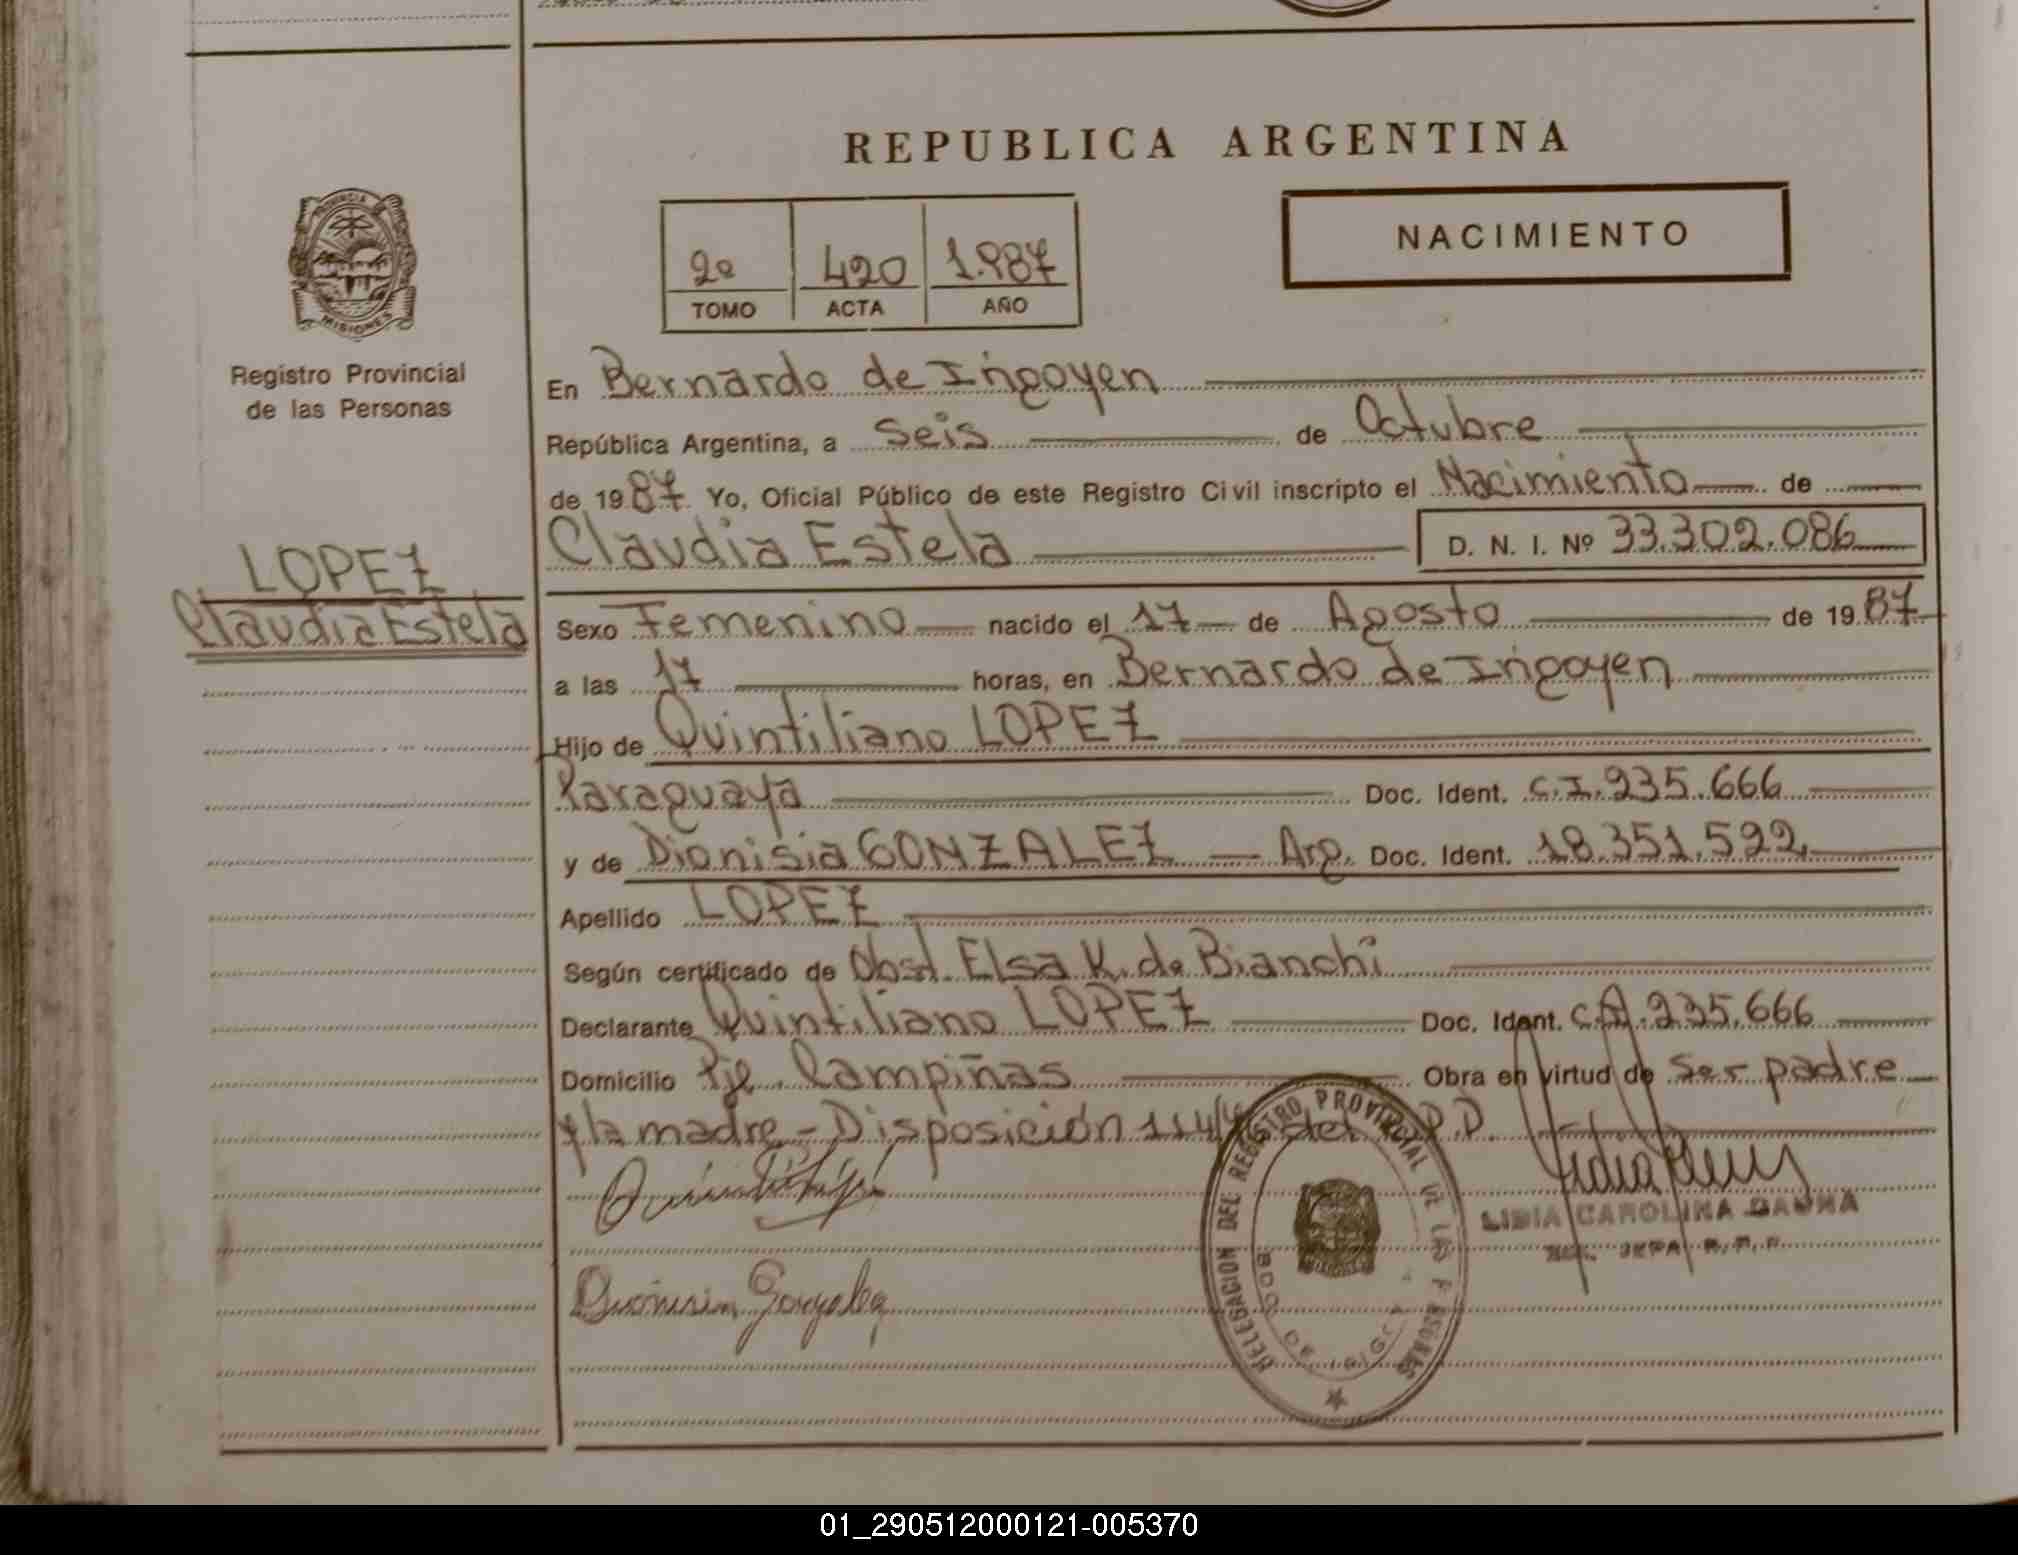 REPUBLICA ARGENTINA
PROVINCIA DE
MISIONES
Registro Provincial
de las Personas
2º 420 1.987
TOMO ACTA AÑO
NACIMIENTO
LOPEZ
Claudia Estela
En Bernardo de Irigoyen
República Argentina, a seis de Octubre
de 1987. Yo, Oficial Público de este Registro Civil inscripto el Nacimiento de
Claudia Estela D. N. I. Nº 33.302.086
Sexo Femenino nacido el 17 de Agosto de 1987
a las 17 horas, en Bernardo de Irigoyen
Hijo de Quintiliano LOPEZ
Paraguaya Doc. Ident. C.I. 235.666
y de Dionisia GONZALEZ Arg. Doc. Ident. 18.351.522
Apellido LOPEZ
Según certificado de Obst. Elsa K. de Bianchi
Declarante Quintiliano LOPEZ Doc. Ident. 235.666
Domicilio Pje. Campiñas Obra en virtud de ser padre
y la madre - Disposición 114/ del
Dionisia Gonzalez
DELEGACION DEL REGISTRO PROVINCIAL DE LAS PERSONAS
BDO. DE IRIGOYEN
LIDIA CAROLINA
01_290512000121-005370